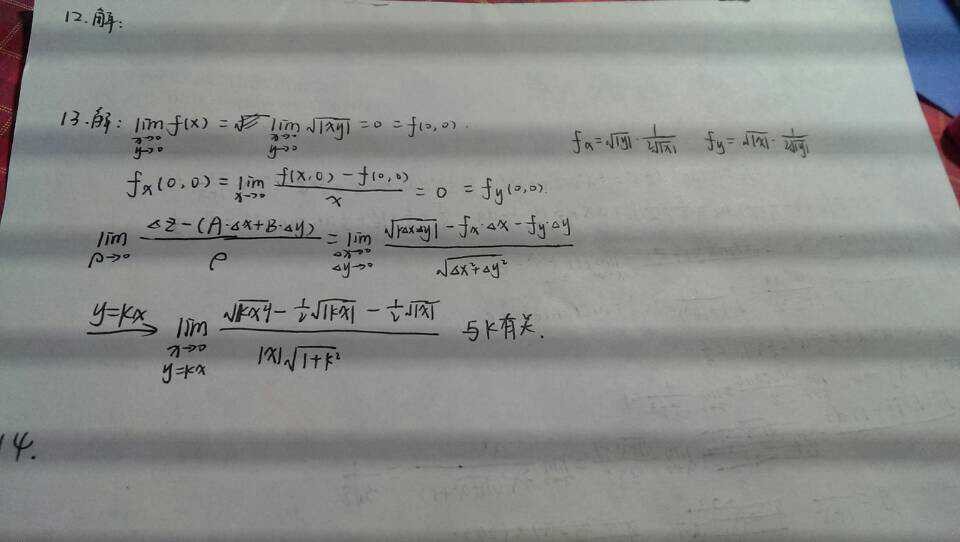 12.解:
13.解: lim x→0 y→0 f(x) = lim x→0 y→0 √|xy| = 0 = f(0,0).
fx = √|y| · 1/2√|x|  fy = √|x| · 1/2√|y|
fx(0,0) = lim x→0 f(x,0) - f(0,0) / x = 0 = fy(0,0)
lim ρ→0 Δz - (A·Δx + B·Δy) / ρ = lim Δx→0 Δy→0 √|ΔxΔy| - fx·Δx - fy·Δy / √Δx²+Δy²
y=kx → lim x→0 y=kx - ½√|kx| - ½√|x| / |x|√1+k² 与k有关.
14.